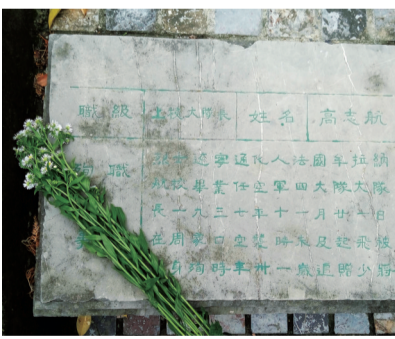 職級 上校大隊長 姓名 高志航
殉職 遼寧通化人法國牟拉納
航校畢業任空軍四大隊大隊
長一九三七年十一月廿一日
事 在周家口空襲時不及起飛被
身殉時年卅一歲追贈少將